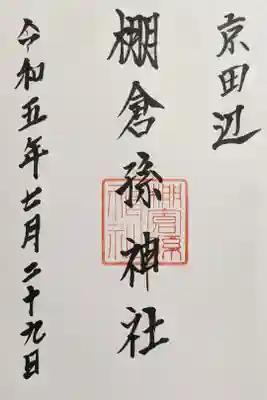 京田辺
棚倉孫神社
令和五年七月二十九日